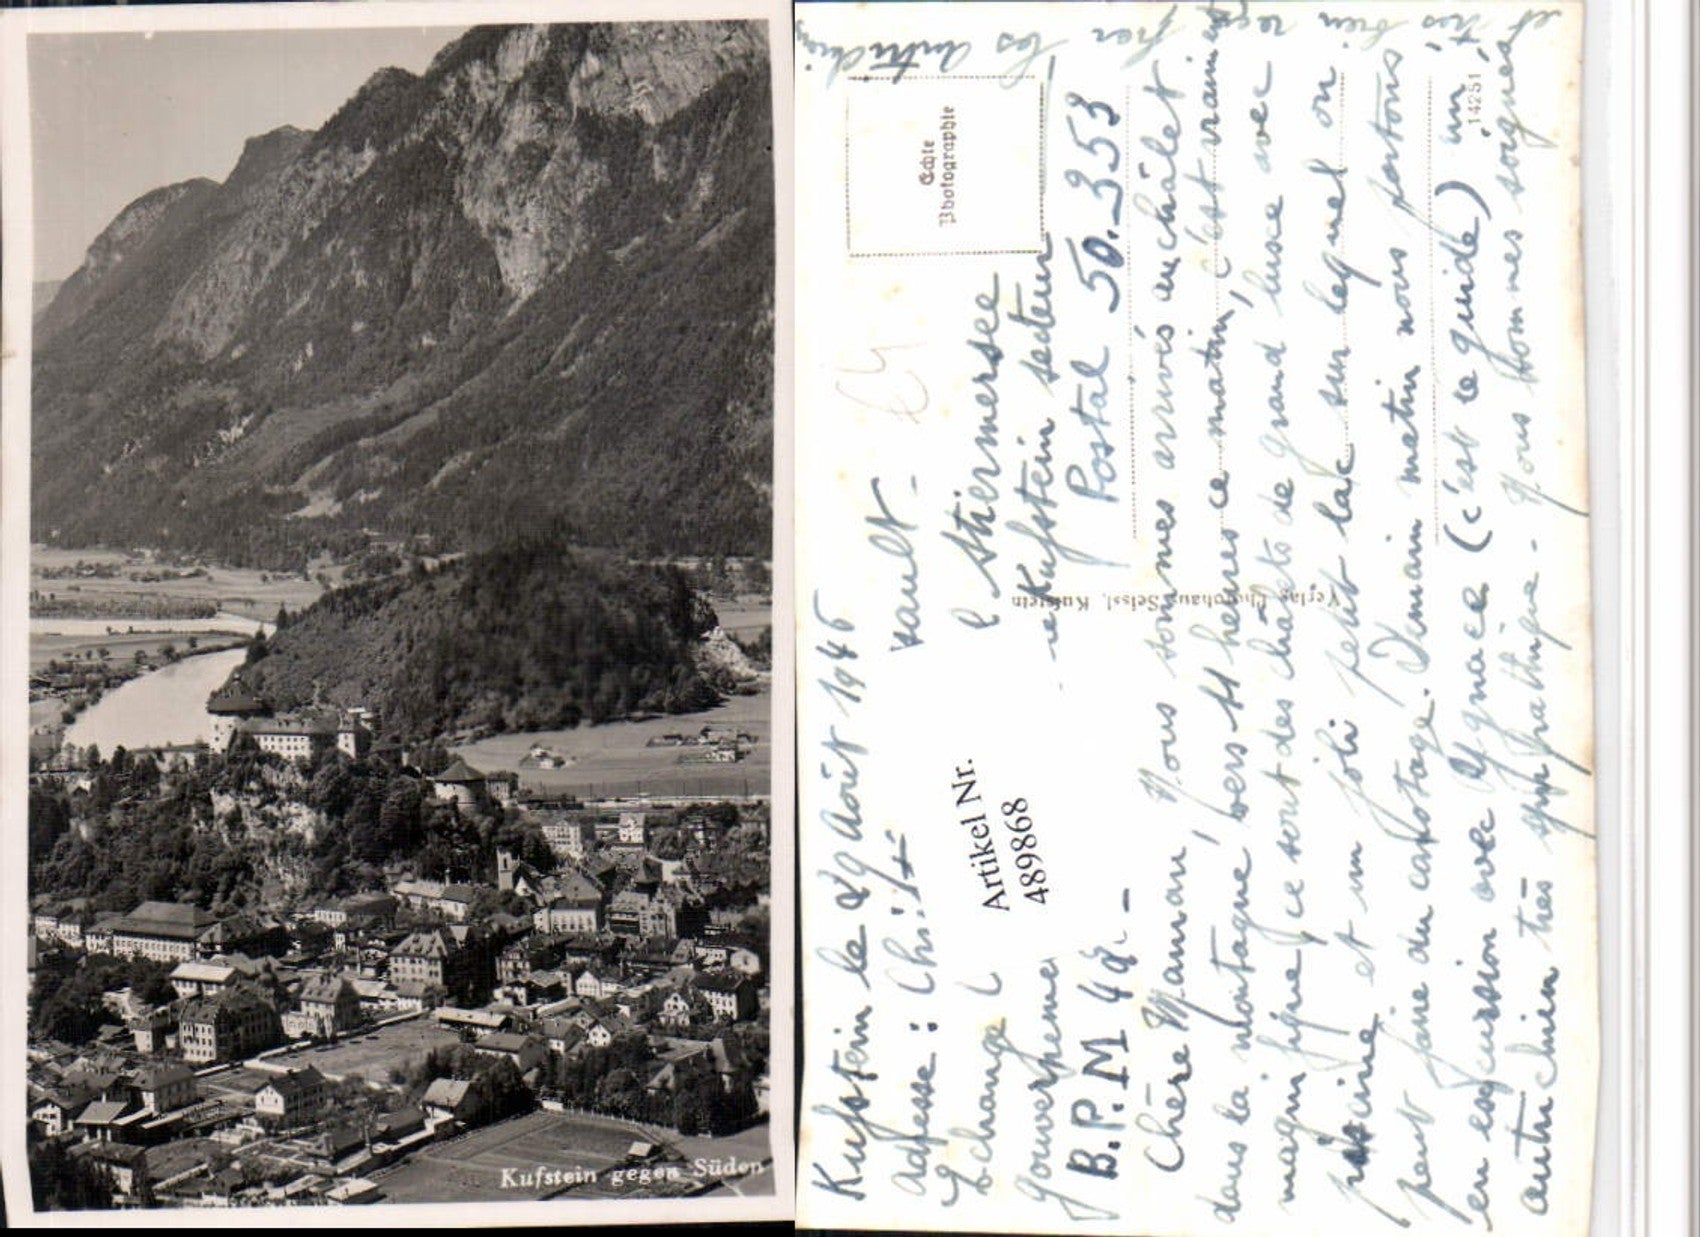 Kufstein gegen Süden
Kufstein le 29 Août 1946
Adresse :
Echange
Gouverneme
B.P.M
sault -
Thiermersee
Kufstein secteur
Postal 50.353
Echte
Photographie
Artikel Nr.
489868
Verlag Photohaus Seissl, Kufstein
14251
Chère Maman, Nous sommes arrivés au châlet
dans la montagne, vers 11 heures ce matin, c'est vraiment
magnifique, ce sont des châlets de grand luxe avec
piscine et un joli petit lac sur lequel on
peut faire du canotage. Demain matin nous partons
en excursion avec Ignace (c'est le guide) un
autrichien très sympathique - Nous sommes soignés
et très bien reçus par les Autrichiens